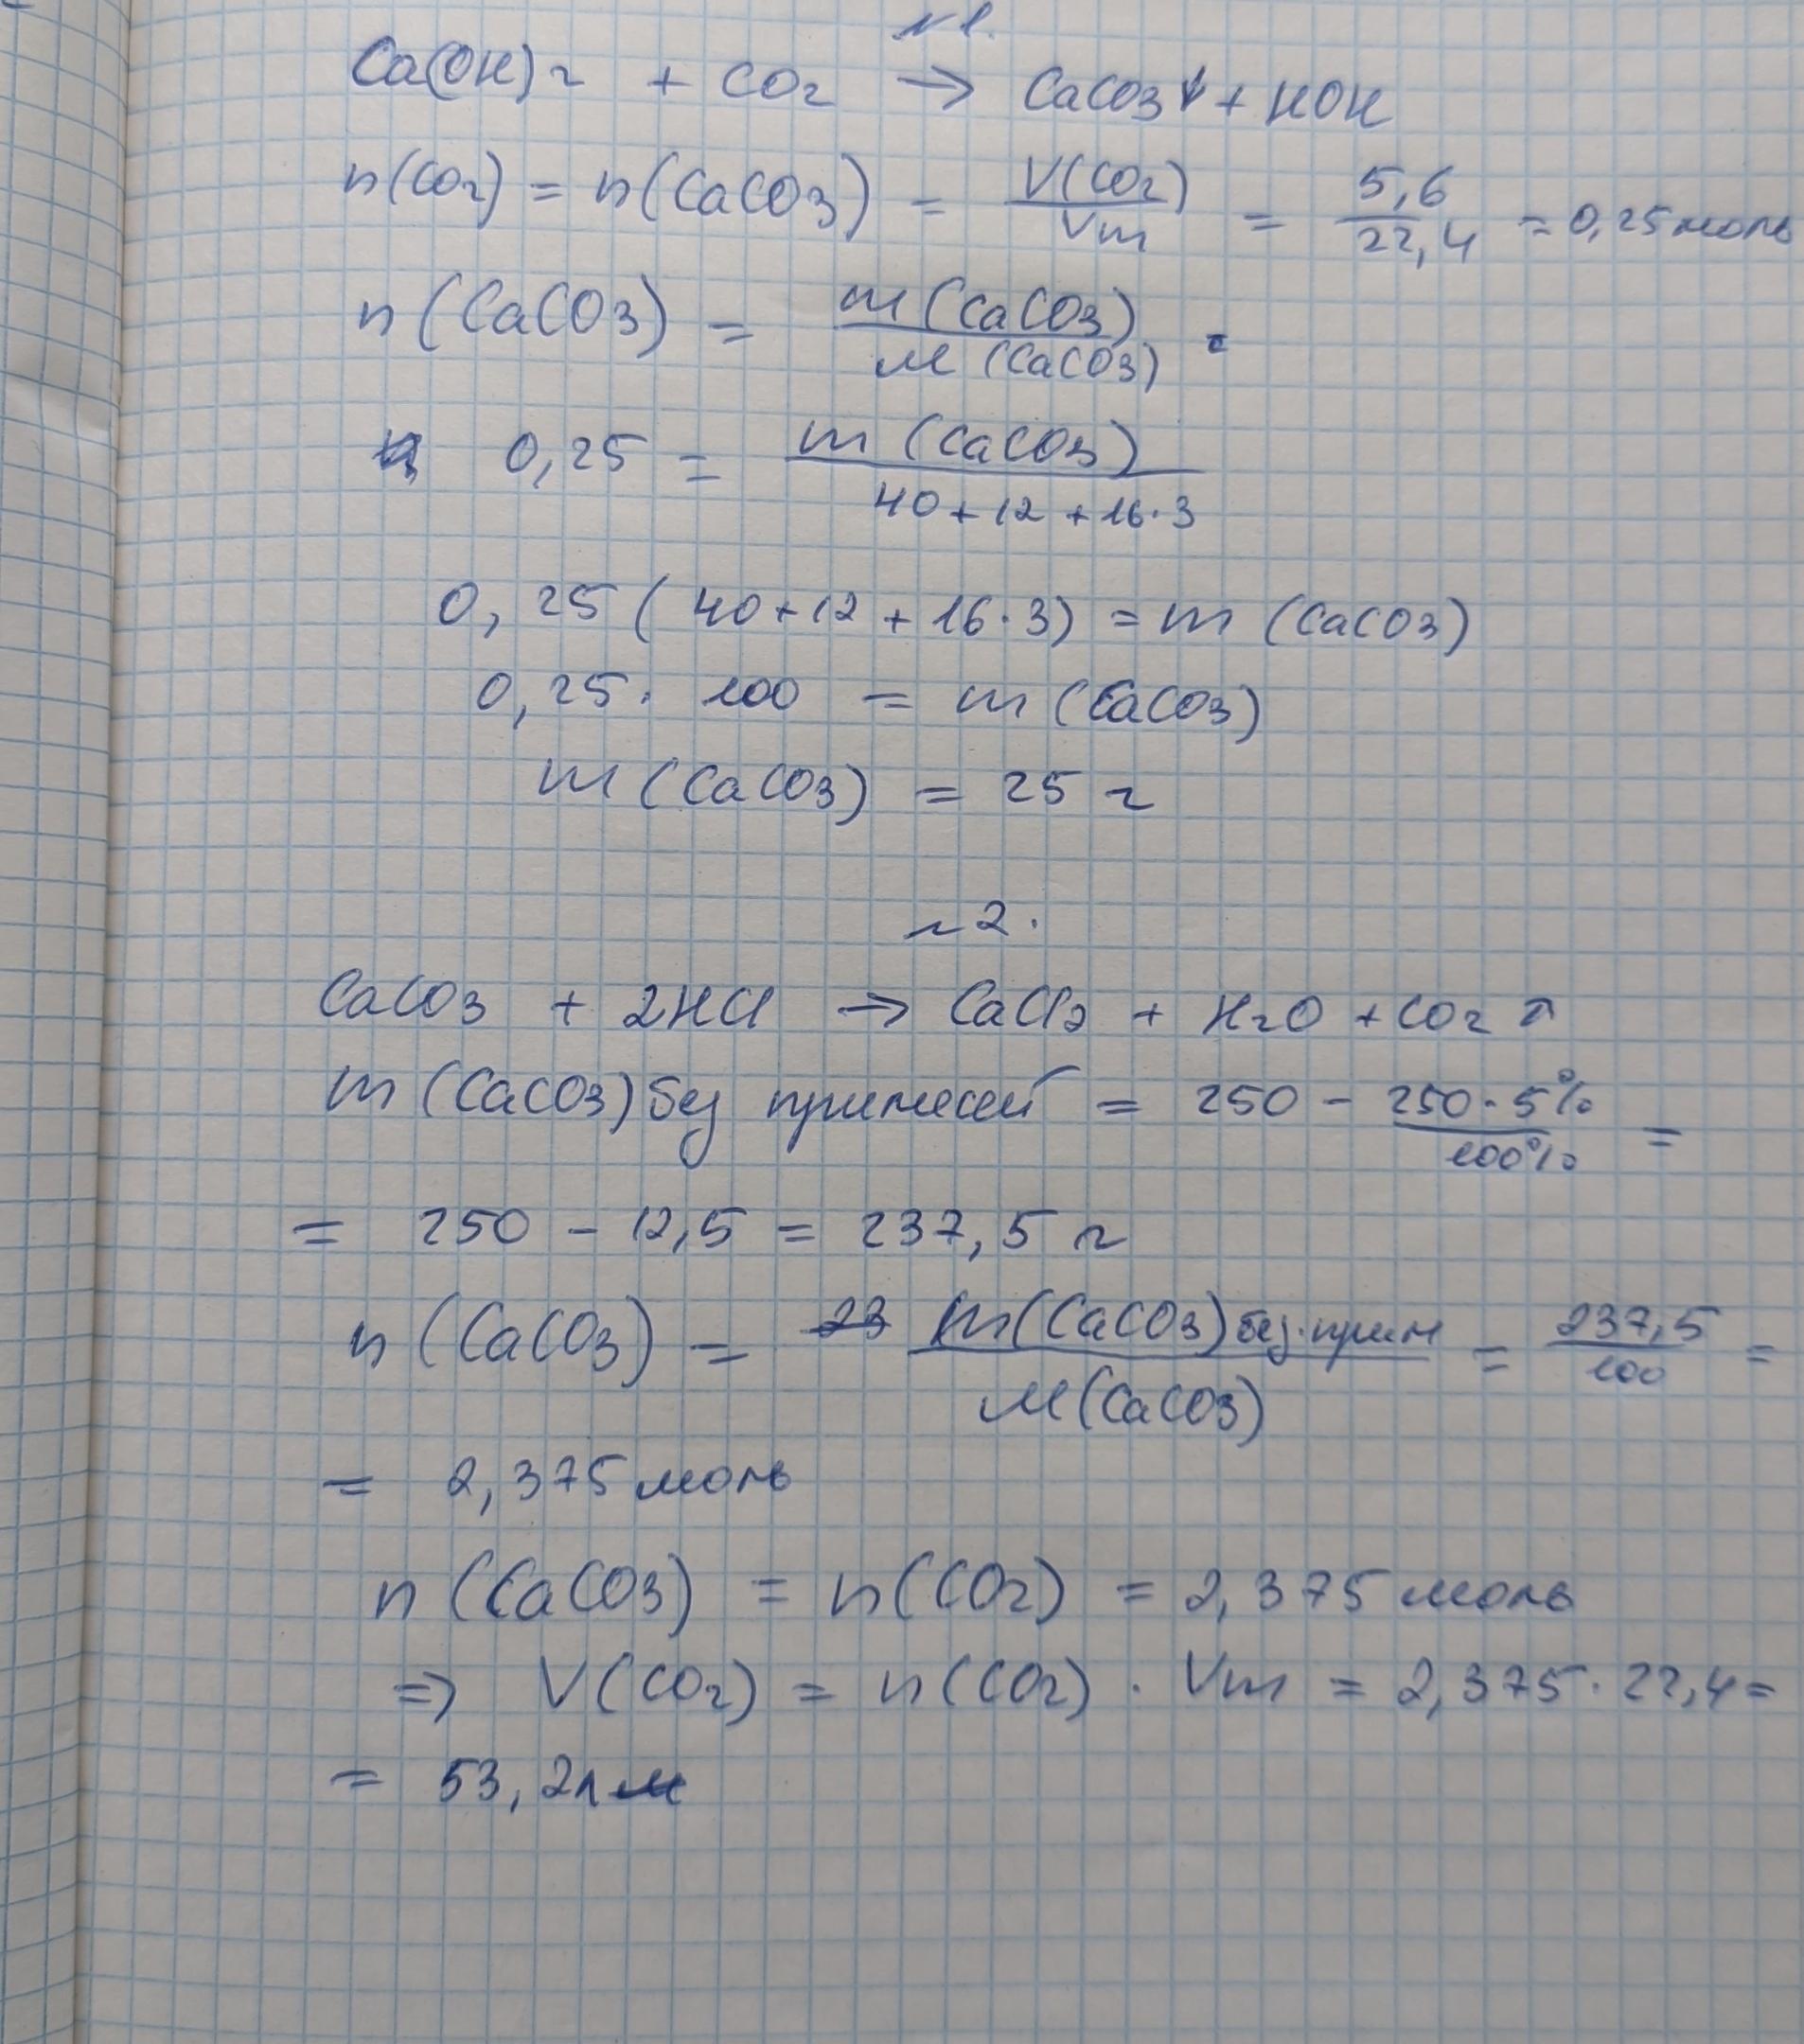 №1.
Ca(OH)2 + CO2 → CaCO3↓ + HOH
n(CO2) = n(CaCO3) = V(CO2)/Vm = 5,6/22,4 = 0,25 моль
n(CaCO3) = m(CaCO3)/M(CaCO3) =
0,25 = m(CaCO3)/40+12+16·3
0,25(40+12+16·3) = m(CaCO3)
0,25 · 100 = m(CaCO3)
m(CaCO3) = 25 г
№2.
CaCO3 + 2HCl → CaCl2 + H2O + CO2↑
m(CaCO3) без примесей = 250 - 250·5%/100% =
= 250 - 12,5 = 237,5 г
n(CaCO3) = 23 m(CaCO3) без.прим/M(CaCO3) = 237,5/100 =
= 2,375 моль
n(CaCO3) = n(CO2) = 2,375 моль
=> V(CO2) = n(CO2) · Vm = 2,375 · 22,4 =
= 53,2л